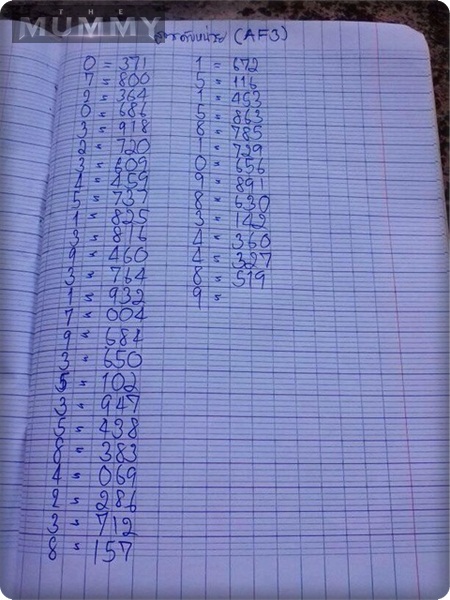 THE
MUMMY
สูตรดับหน่วย (AF3)
0 = 371
7 = 800
2 = 364
0 " 686
3 " 918
2 " 720
3 " 609
" 459
5 " 737
1 " 825
3 " 816
9 " 460
3 " 764
1 " 932
7 " 004
9 " 687
3 " 650
5 " 102
3 " 947
5 " 438
" 383
4 " 069
2 " 286
3 " 712
8 " 157
1 = 672
5 = 116
1 = 453
5 " 863
8 " 785
1 " 729
0 " 656
9 " 891
8 " 630
3 " 142
4 " 360
4 " 327
8 " 519
9 "